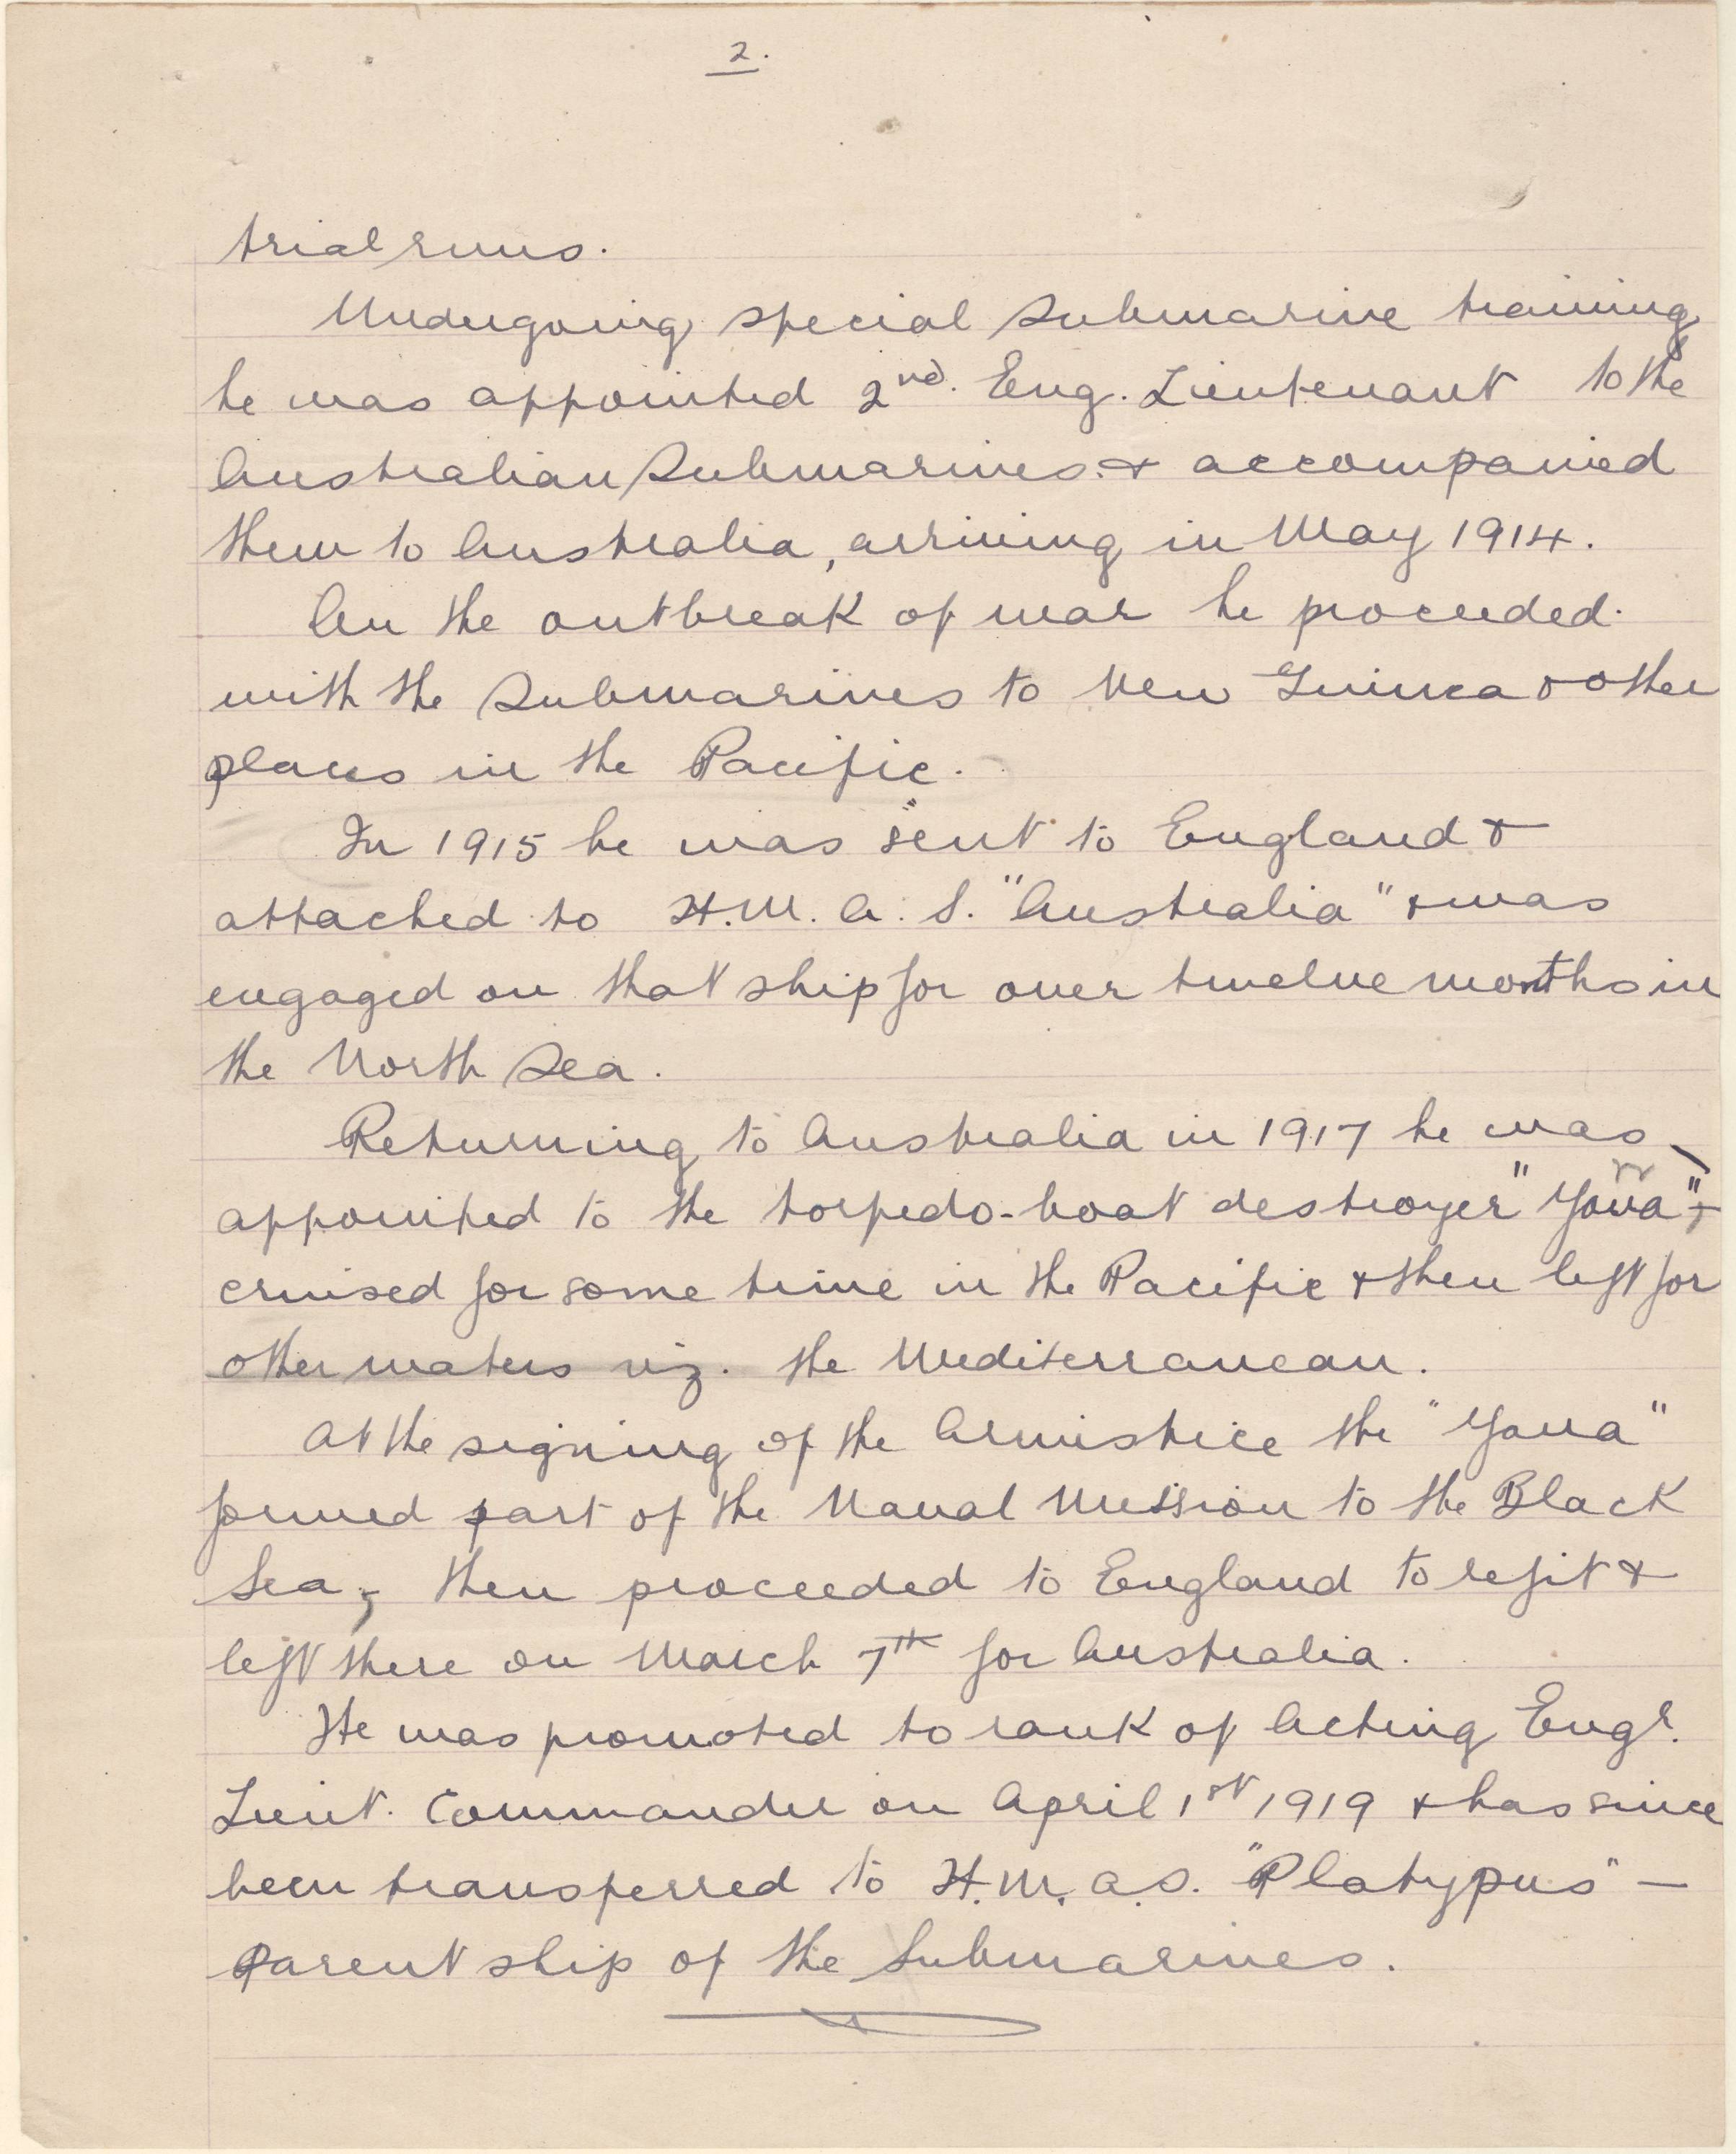 2.
trial runs.
Undergoing special Submarine training
he was appointed 2nd. Eng. Lieutenant to the
Australian Submarines & accompanied
them to Australia, arriving in May 1914.
On the outbreak of war he proceeded
with the Submarines to New Guinea & other
places in the Pacific.
In 1915 he was sent to England &
attached to H.M.A.S. "Australia" & was
engaged on that ship for over twelve months in
the North Sea.
Returning to Australia in 1917 he was
appointed to the torpedo-boat destroyer "Yarra" &
cruised for some time in the Pacific & then left for
other waters viz. the Mediterranean.
At the signing of the Armistice the "Yarra"
formed part of the Naval Mission to the Black
Sea, then proceeded to England to refit &
left there on March 7th for Australia.
He was promoted to rank of Acting Engr.
Lieut. Commander on April 1st 1919 & has since
been transferred to H.M.A.S. "Platypus" –
Parent ship of the Submarines.